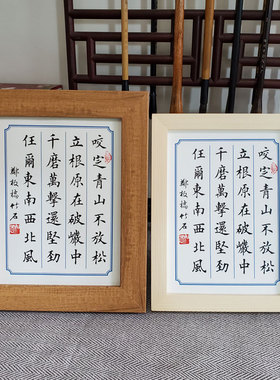 咬定青山不放松
立根原在破巖中
千磨萬擊還堅勁
任爾東南西北風
鄭板橋竹石
咬定青山不放松
立根原在破巖中
千磨萬擊還堅勁
任爾東南西北風
鄭板橋竹石